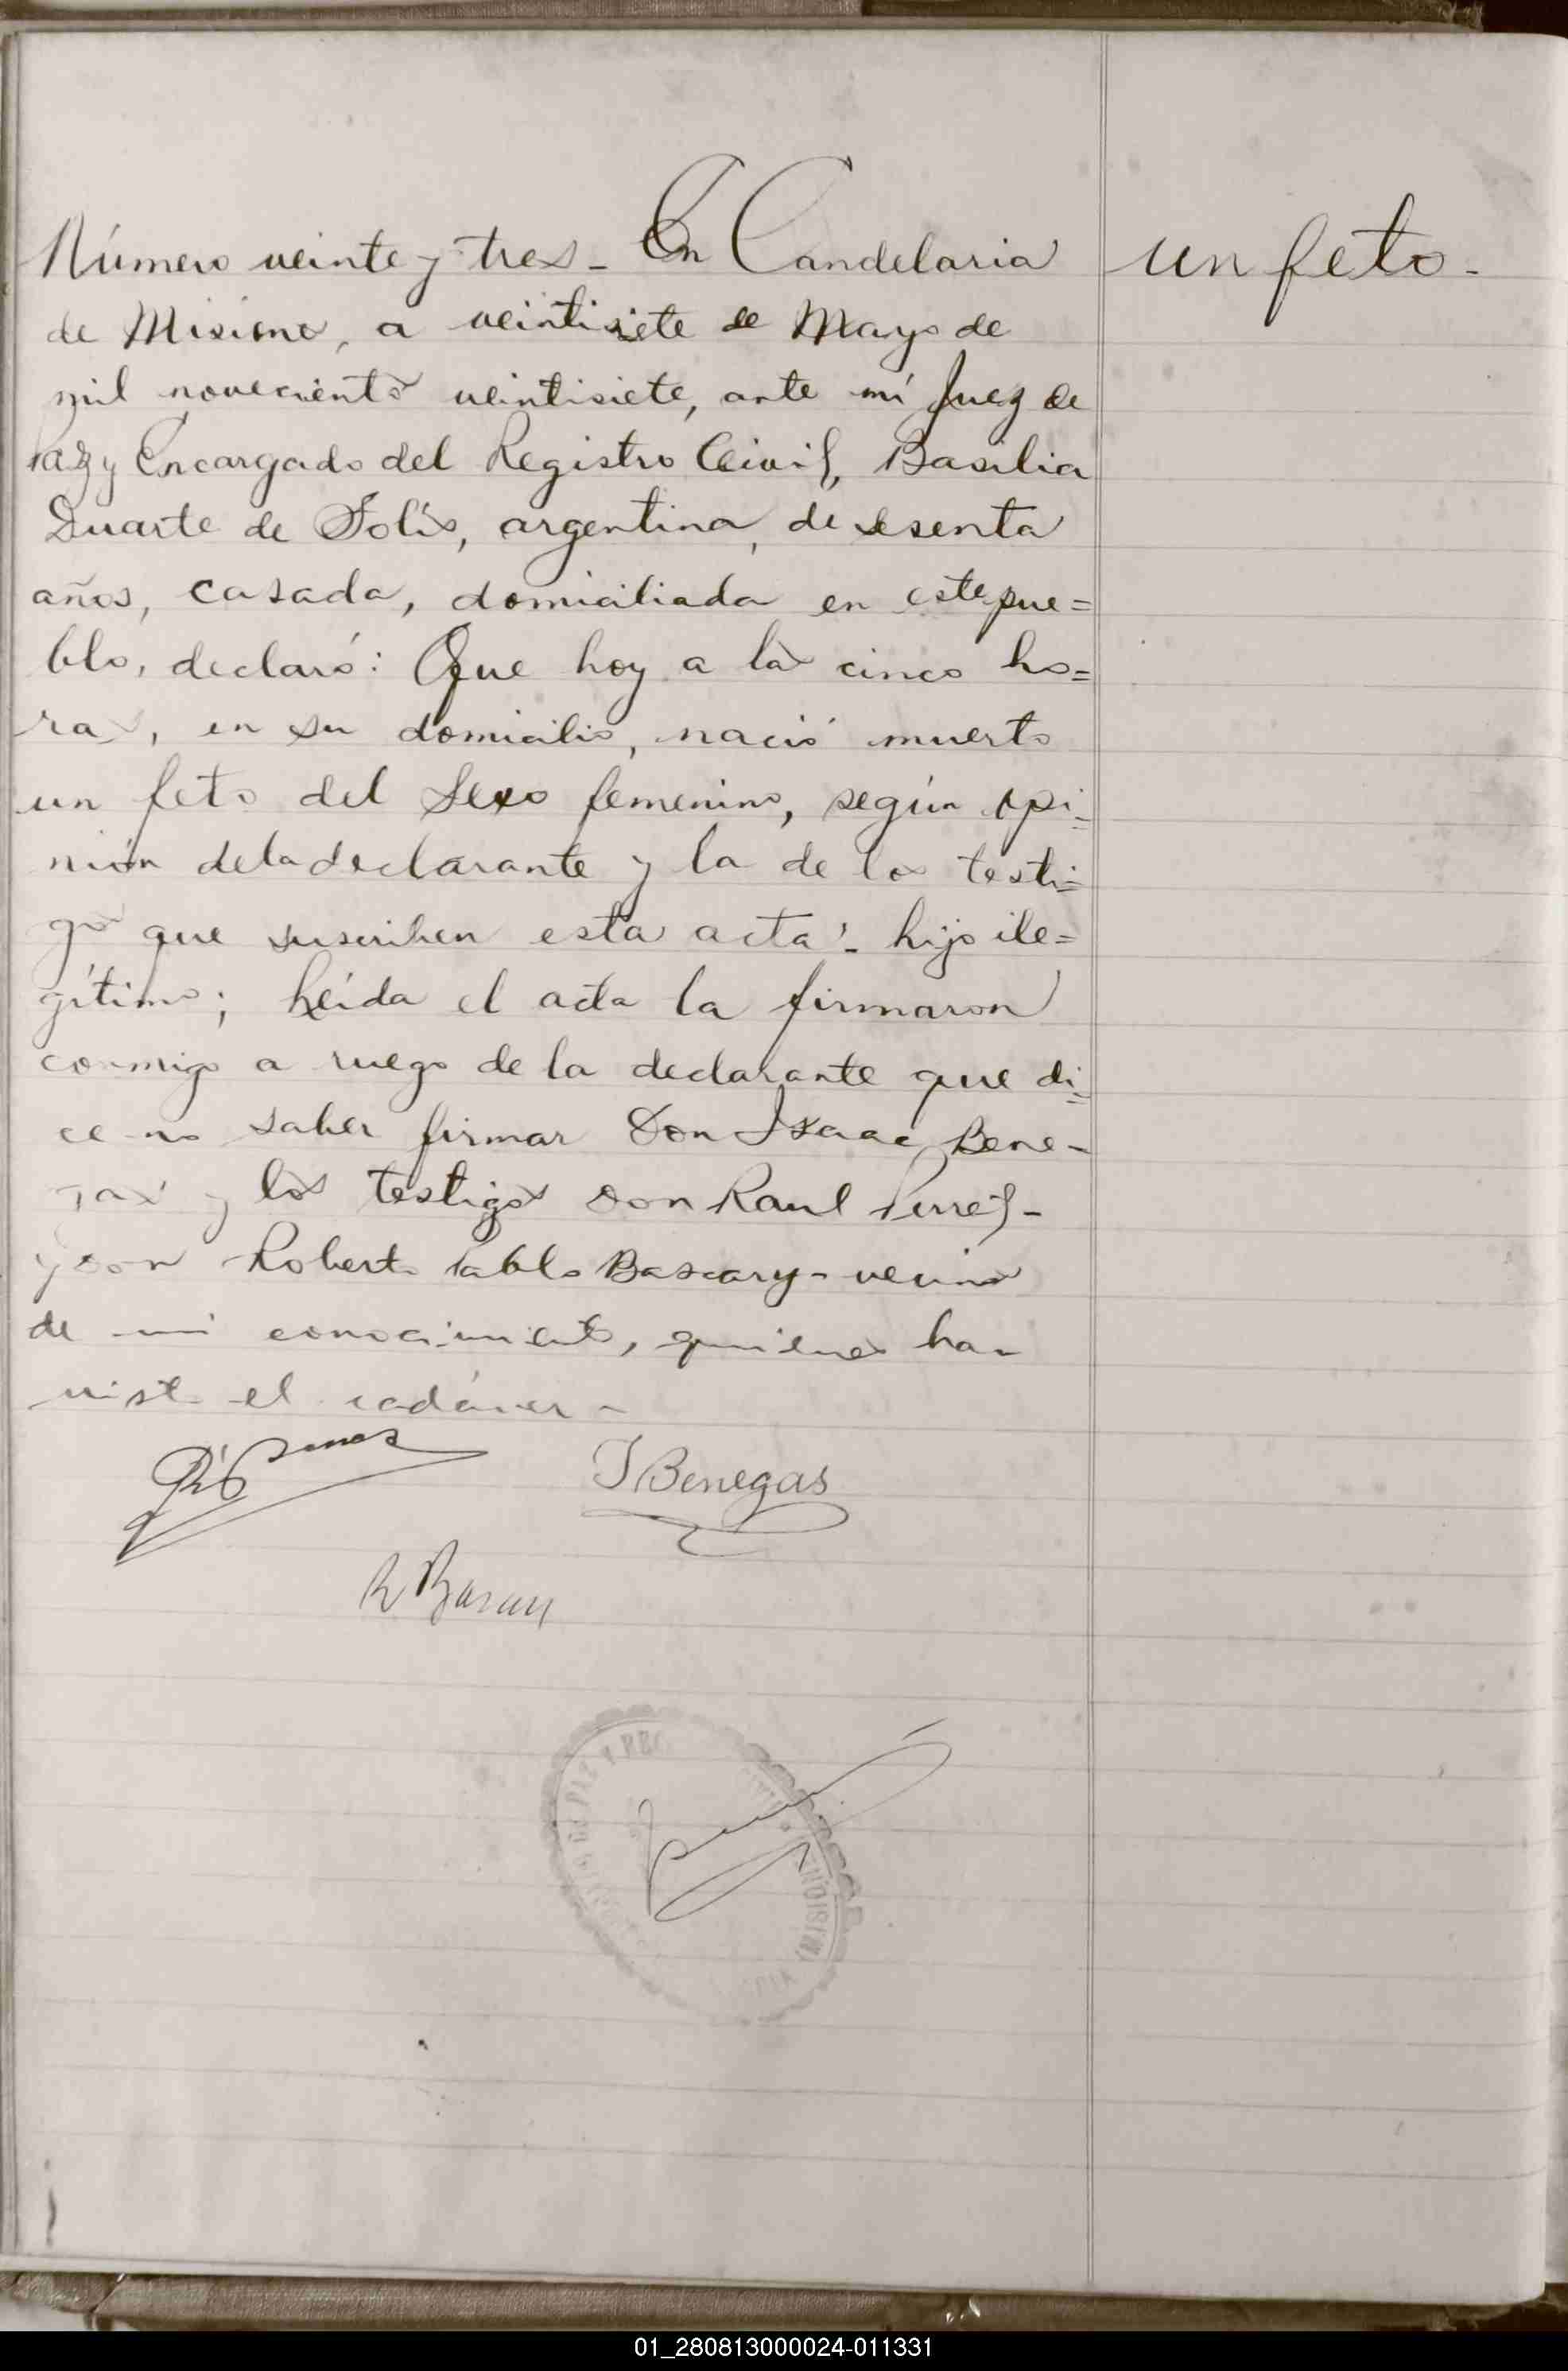 Número veinte y tres - En Candelaria
un feto -
de Misiones, a veintisiete de Mayo de
mil novecientos veintisiete, ante mí Juez de
Paz y Encargado del Registro Civil, Basilia
Duarte de Solís, argentina, de sesenta
años, casada, domiciliada en este pue=
blo, declaró: Que hoy a las cinco ho=
ras, en su domicilio, nació muerto
un feto del Sexo femenino, según opi=
nión de la declarante y la de los testi=
gos que suscriben esta acta - hijo ile=
gítimo; leída el acta la firmaron
conmigo a ruego de la declarante que di=
ce no saber firmar Don Isaac Bene-
gas y los testigos Don Raul
y don Roberto Pablo Bascary - vecinos
de mi conocimiento, quienes han
visto el cadáver -
I Benegas
DE PAZ Y REG
MISIONES
01_280813000024-011331